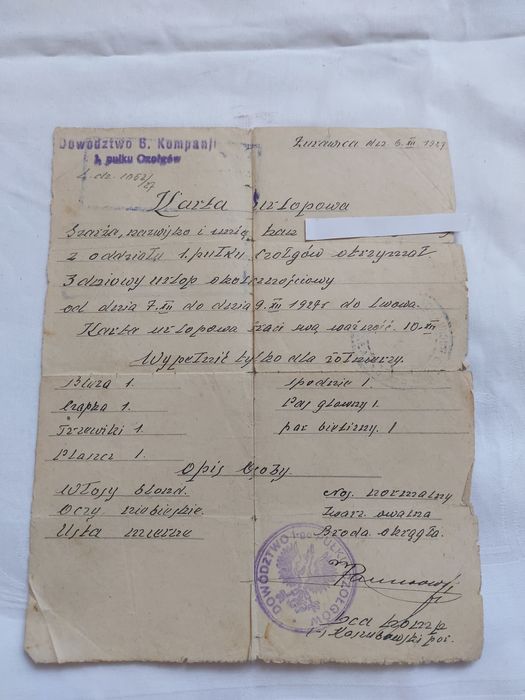 Dowództwo 6. Kompanji
1. pułku Czołgów
L. dz. 1052/27
Żurawica dn. 6 XII 1927
Karta urlopowa
Szarża, nazwisko i imię, kan
z oddziału 1. pułku czołgów otrzymał
3 dniowy urlop okolicznościowy
od dnia 7. XII do dnia 9. XII 1927 r do Lwowa.
Karta urlopowa traci swą ważność 10. XII
Wypełnić tylko dla żołnierzy.
Bluza 1. spodnie 1.
Czapka 1. Pas główny 1.
Trzewiki 1. par bielizny 1
Płaszcz 1.
Opis Osoby
Włosy blond. Nos normalny
Oczy niebieskie. Twarz owalna
Usta mierne Broda okrągła.
DOWÓDZTWO 1-GO PUŁKU CZOŁGÓW
dca komp
(-) Kaszubowski por.